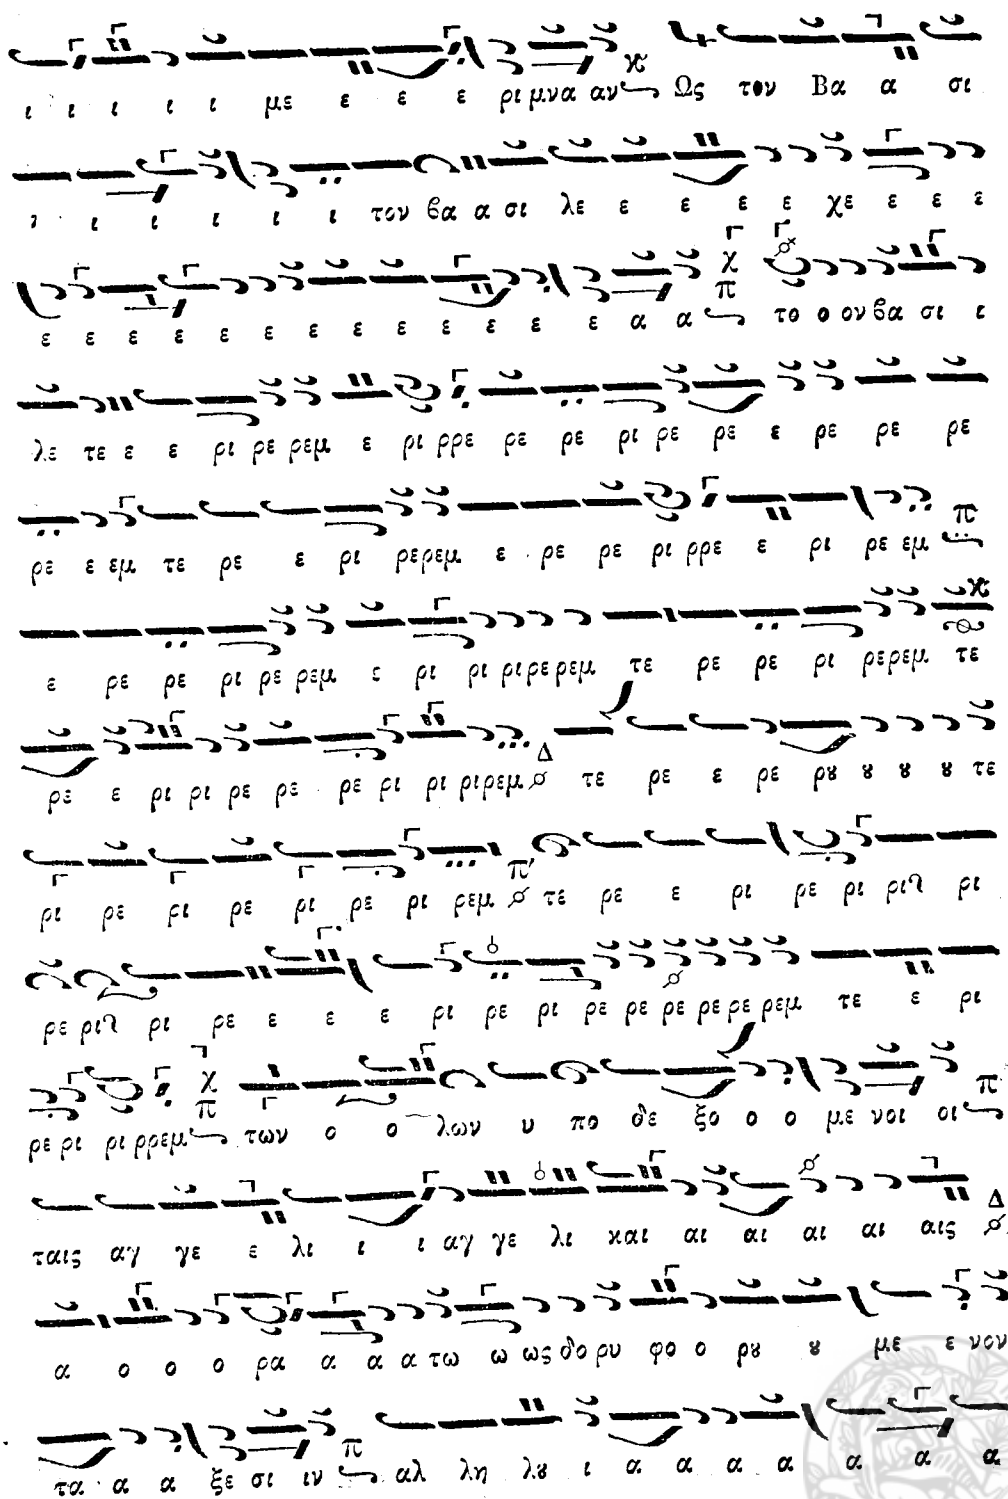 ι ι ι ι ι με ε ε ε ρι μνα αν Ως τον Βα α σι
ι ι ι ι ι ι τον βα α σι λε ε ε ε ε χε ε ε ε
ε ε ε ε ε ε ε ε ε ε ε ε ε α α το ο ον βα σι ι
λε τε ε ε ρι ρε ρεμ ε ρι ρρε ρε ρε ρι ρε ρε ε ρε ρε ρε
ρε ε εμ τε ρε ε ρι ρερεμ ε ρε ρε ρι ρρε ε ρι ρε εμ
ε ρε ρε ρι ρε ρεμ ε ρι ρι ριρερεμ τε ρε ρε ρι ρερεμ τε
ρε ε ρι ρι ρε ρε ρε ρι ρι ριρεμ τε ρε ε ρε ρȣ ȣ ȣ ȣ τε
ρι ρε ρι ρε ρι ρε ρι ρεμ τε ρε ε ρι ρε ρι ριγ ρι
ρε ριγ ρι ρε ε ε ε ρι ρε ρι ρε ρε ρε ρε ρε ρεμ τε ε ρι
ρε ρι ρι ρρεμ των ο ο λων υ πο δε ξο ο ο με νοι οι
ταις αγ γε ε λι ι ι αγ γε λι και αι αι αι αι αις
α ο ο ο ρα α α α τω ω ως δο ρυ φο ο ρȣ ȣ με ε νον
τα α α ξε σι ιν αλ λη λȣ ι α α α α α α α